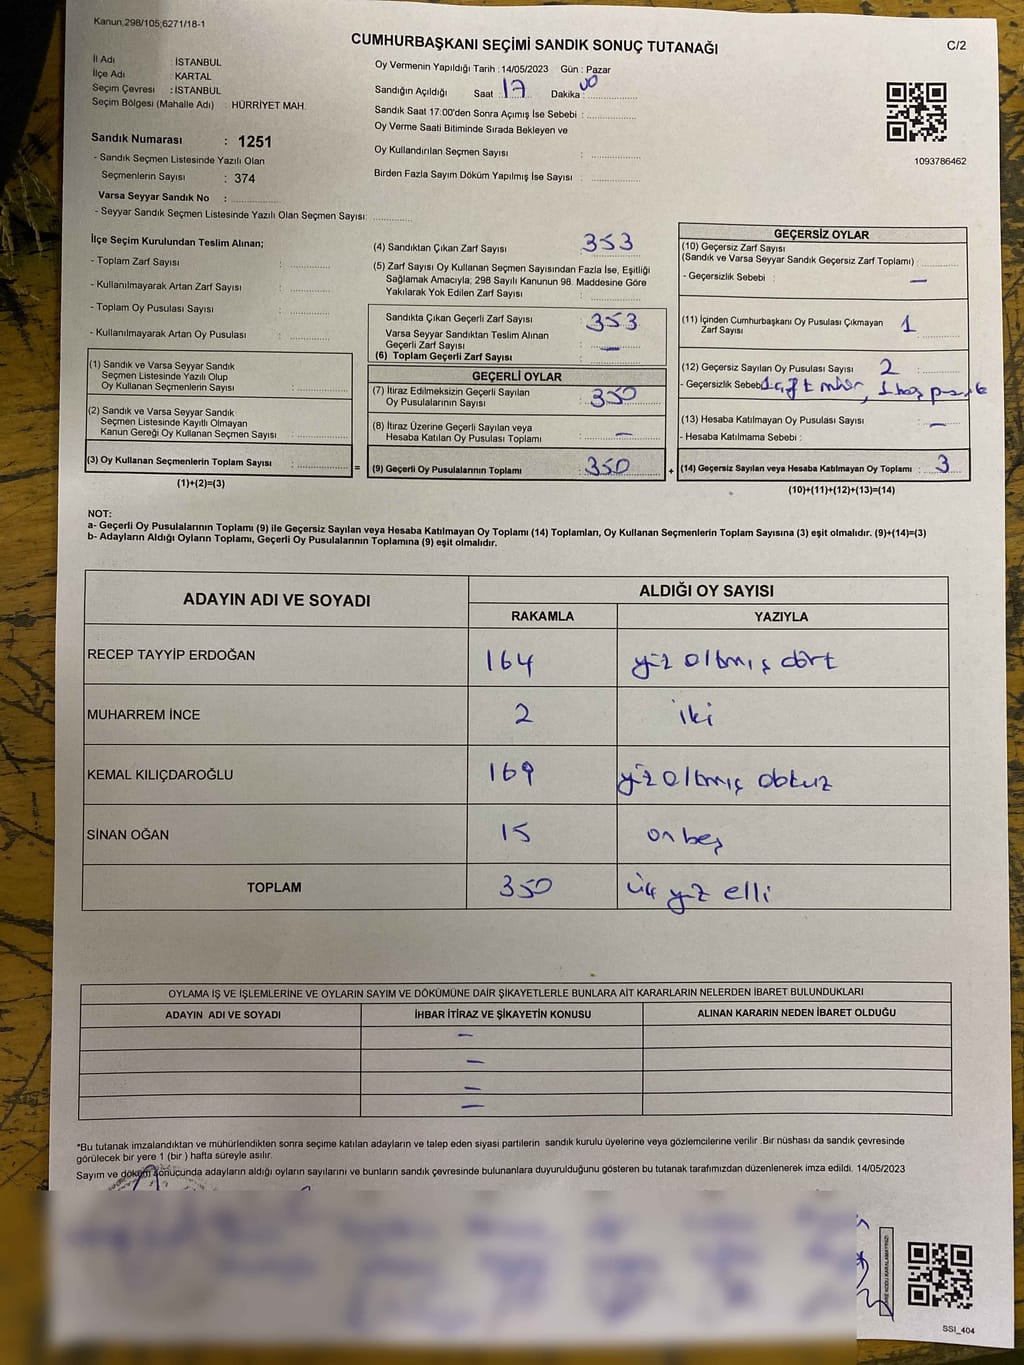 Kanun;298/105;6271/18-1
CUMHURBAŞKANI SEÇİMİ SANDIK SONUÇ TUTANAĞI
C/2
İl Adı : İSTANBUL
İlçe Adı : KARTAL
Seçim Çevresi : İSTANBUL
Seçim Bölgesi (Mahalle Adı) : HÜRRİYET MAH.
Sandık Numarası : 1251
- Sandık Seçmen Listesinde Yazılı Olan
Seçmenlerin Sayısı : 374
Varsa Seyyar Sandık No :
- Seyyar Sandık Seçmen Listesinde Yazılı Olan Seçmen Sayısı:
Oy Vermenin Yapıldığı Tarih : 14/05/2023 Gün : Pazar
Sandığın Açıldığı Saat : 17 Dakika : 00
Sandık Saat 17:00'den Sonra Açımış İse Sebebi :
Oy Verme Saati Bitiminde Sırada Bekleyen ve
Oy Kullandırılan Seçmen Sayısı :
Birden Fazla Sayım Döküm Yapılmış İse Sayısı :
1093786462
İlçe Seçim Kurulundan Teslim Alınan;
- Toplam Zarf Sayısı :
- Kullanılmayarak Artan Zarf Sayısı :
- Toplam Oy Pusulası Sayısı :
- Kullanılmayarak Artan Oy Pusulası :
(1) Sandık ve Varsa Seyyar Sandık
Seçmen Listesinde Yazılı Olup
Oy Kullanan Seçmenlerin Sayısı :
(2) Sandık ve Varsa Seyyar Sandık
Seçmen Listesinde Kayıtlı Olmayan
Kanun Gereği Oy Kullanan Seçmen Sayısı :
(3) Oy Kullanan Seçmenlerin Toplam Sayısı :
(1)+(2)=(3)
=
(4) Sandıktan Çıkan Zarf Sayısı : 353
(5) Zarf Sayısı Oy Kullanan Seçmen Sayısından Fazla İse, Eşitliği
Sağlamak Amacıyla; 298 Sayılı Kanunun 98. Maddesine Göre
Yakılarak Yok Edilen Zarf Sayısı :
Sandıkta Çıkan Geçerli Zarf Sayısı : 353
Varsa Seyyar Sandıktan Teslim Alınan
Geçerli Zarf Sayısı : —
(6) Toplam Geçerli Zarf Sayısı :
GEÇERLİ OYLAR
(7) İtiraz Edilmeksizin Geçerli Sayılan
Oy Pusulalarının Sayısı : 350
(8) İtiraz Üzerine Geçerli Sayılan veya
Hesaba Katılan Oy Pusulası Toplamı : —
(9) Geçerli Oy Pusulalarının Toplamı : 350
+
GEÇERSİZ OYLAR
(10) Geçersiz Zarf Sayısı
(Sandık ve Varsa Seyyar Sandık Geçersiz Zarf Toplamı) :
- Geçersizlik Sebebi : —
(11) İçinden Cumhurbaşkanı Oy Pusulası Çıkmayan
Zarf Sayısı : 1
(12) Geçersiz Sayılan Oy Pusulası Sayısı : 2
- Geçersizlik Sebebi 1 çift mühür, 1 boş
(13) Hesaba Katılmayan Oy Pusulası Sayısı : —
- Hesaba Katılmama Sebebi :
(14) Geçersiz Sayılan veya Hesaba Katılmayan Oy Toplamı : 3
(10)+(11)+(12)+(13)=(14)
NOT:
a- Geçerli Oy Pusulalarının Toplamı (9) ile Geçersiz Sayılan veya Hesaba Katılmayan Oy Toplamı (14) Toplamları, Oy Kullanan Seçmenlerin Toplam Sayısına (3) eşit olmalıdır. (9)+(14)=(3)
b- Adayların Aldığı Oyların Toplamı, Geçerli Oy Pusulalarının Toplamına (9) eşit olmalıdır.
ADAYIN ADI VE SOYADI
ALDIĞI OY SAYISI
RAKAMLA YAZIYLA
RECEP TAYYİP ERDOĞAN 164 yüz altmış dört
MUHARREM İNCE 2 iki
KEMAL KILIÇDAROĞLU 169 yüz altmış dokuz
SİNAN OĞAN 15 on beş
TOPLAM 350 üç yüz elli
OYLAMA İŞ VE İŞLEMLERİNE VE OYLARIN SAYIM VE DÖKÜMÜNE DAİR ŞİKAYETLERLE BUNLARA AİT KARARLARIN NELERDEN İBARET BULUNDUKLARI
ADAYIN ADI VE SOYADI İHBAR İTİRAZ VE ŞİKAYETİN KONUSU ALINAN KARARIN NEDEN İBARET OLDUĞU
—
—
—
—
*Bu tutanak imzalandıktan ve mühürlendikten sonra seçime katılan adayların ve talep eden siyasi partilerin sandık kurulu üyelerine veya gözlemcilerine verilir .Bir nüshası da sandık çevresinde
görülecek bir yere 1 (bir ) hafta süreyle asılır.
Sayım ve döküm sonucunda adayların aldığı oyların sayılarını ve bunların sandık çevresinde bulunanlara duyurulduğunu gösteren bu tutanak tarafımızdan düzenlenerek imza edildi. 14/05/2023
KARE KODU KARALAMAYINIZ!
SSI_404